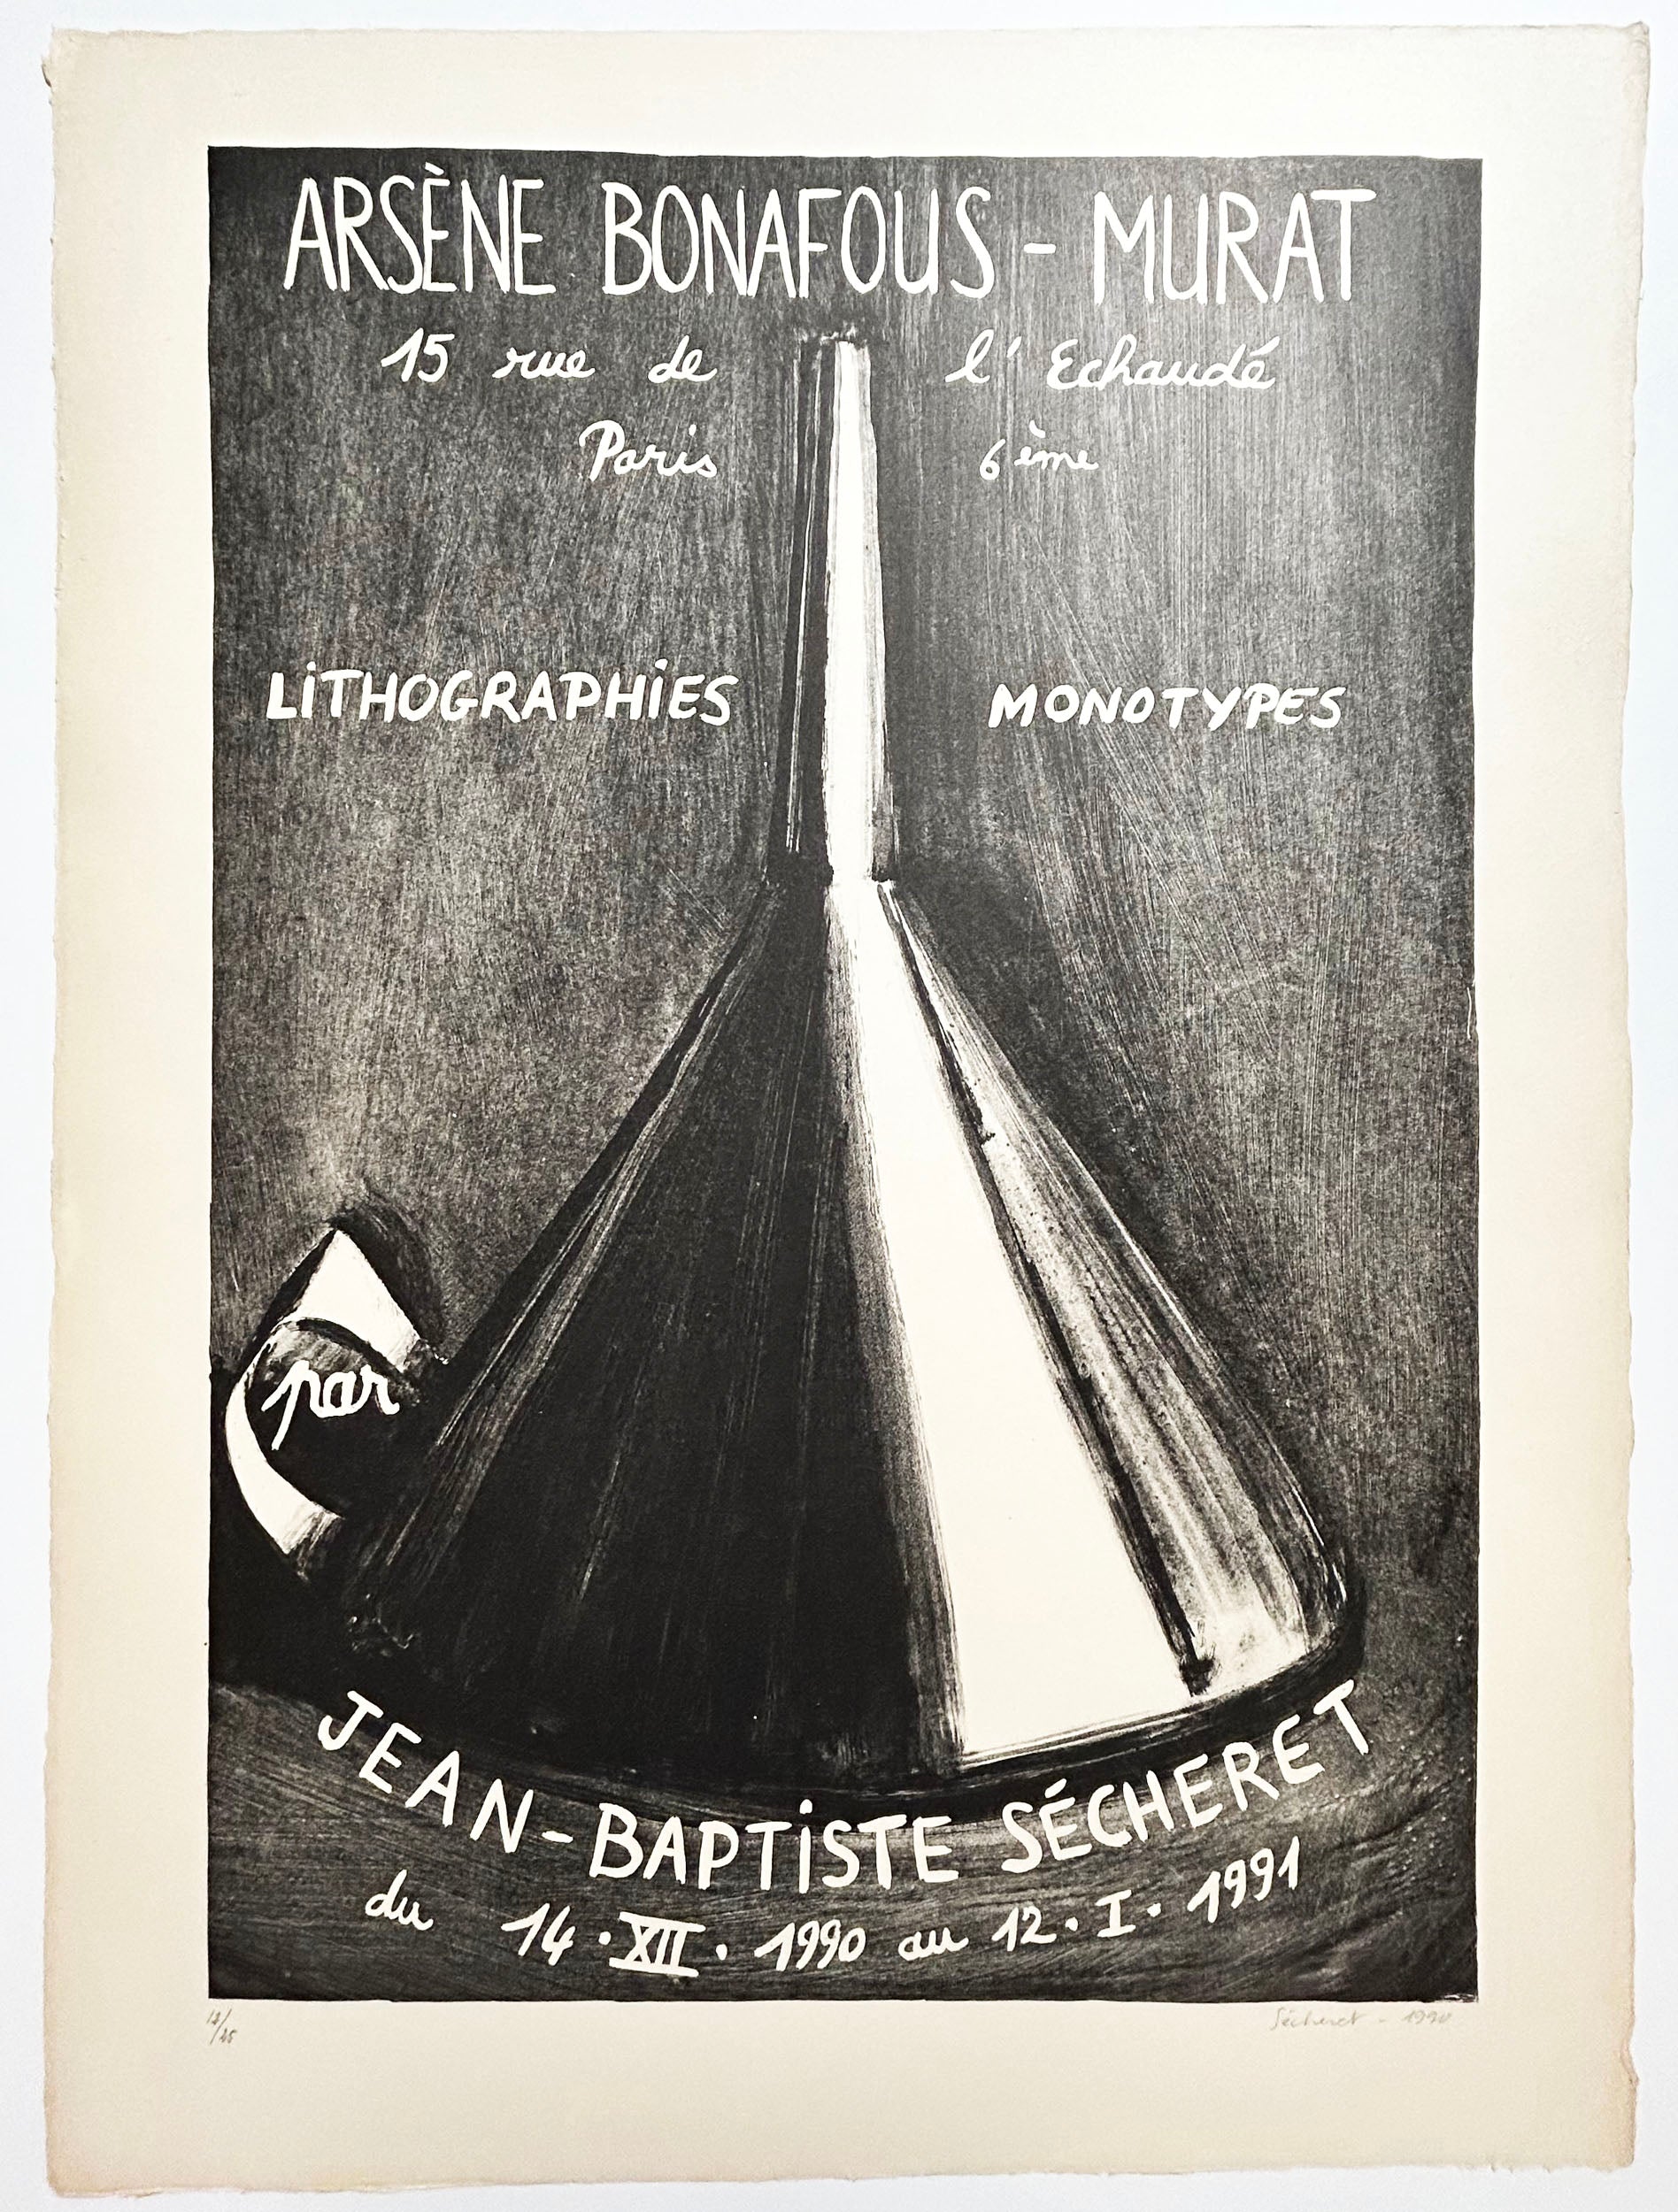 ARSÈNE BONAFOUS - MURAT
15 rue de l'Echaudé
Paris 6ème
LiTHOGRAPHiES MONOTYPES
par
JEAN-BAPTiSTE SÉCHERET
du 14 · XII · 1990 au 12 · I · 1991
Sécheret - 1990